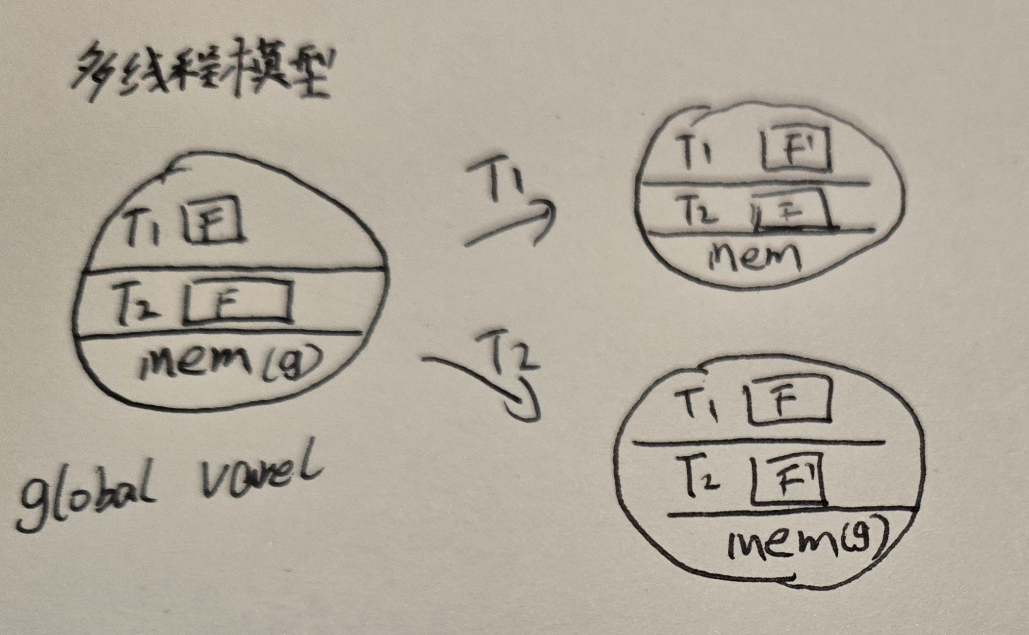 多线程模型
T1 F
T2 F
mem(g)
global
T1
T2
T1 F'
T2 F
mem
T1 F
T2 F'
mem(g)